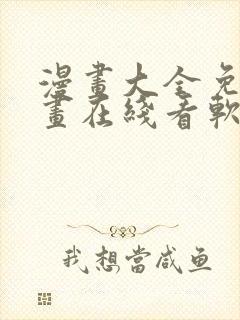 漫畫大全免
畫在綫看軟
我想當咸鱼